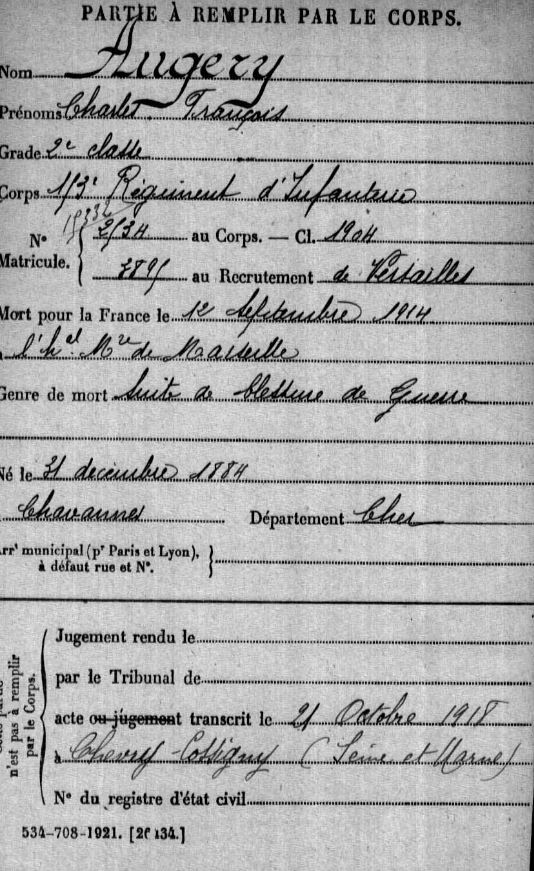 PARTIE À REMPLIR PAR LE CORPS.
Nom Augery
Prénoms Charles François
Grade 2e classe
Corps 113e Régiment d'Infanterie
N° 2134 au Corps. — Cl. 1904
Matricule. au Recrutement de Versailles
Mort pour la France le 12 septembre 1914
à l'hal Mre de Marseille
Genre de mort Suite de blessure de Guerre
Né le 31 décembre 1884
Chavannes Département Cher
Arrt municipal (pr Paris et Lyon),
à défaut rue et N°.
Jugement rendu le
par le Tribunal de
acte ou jugement transcrit le 21 Octobre 1918
à Chevry-Cossigny (Seine et Marne)
N° du registre d'état civil
n'est pas à remplir
par le Corps.
534-708-1921. [26434.]